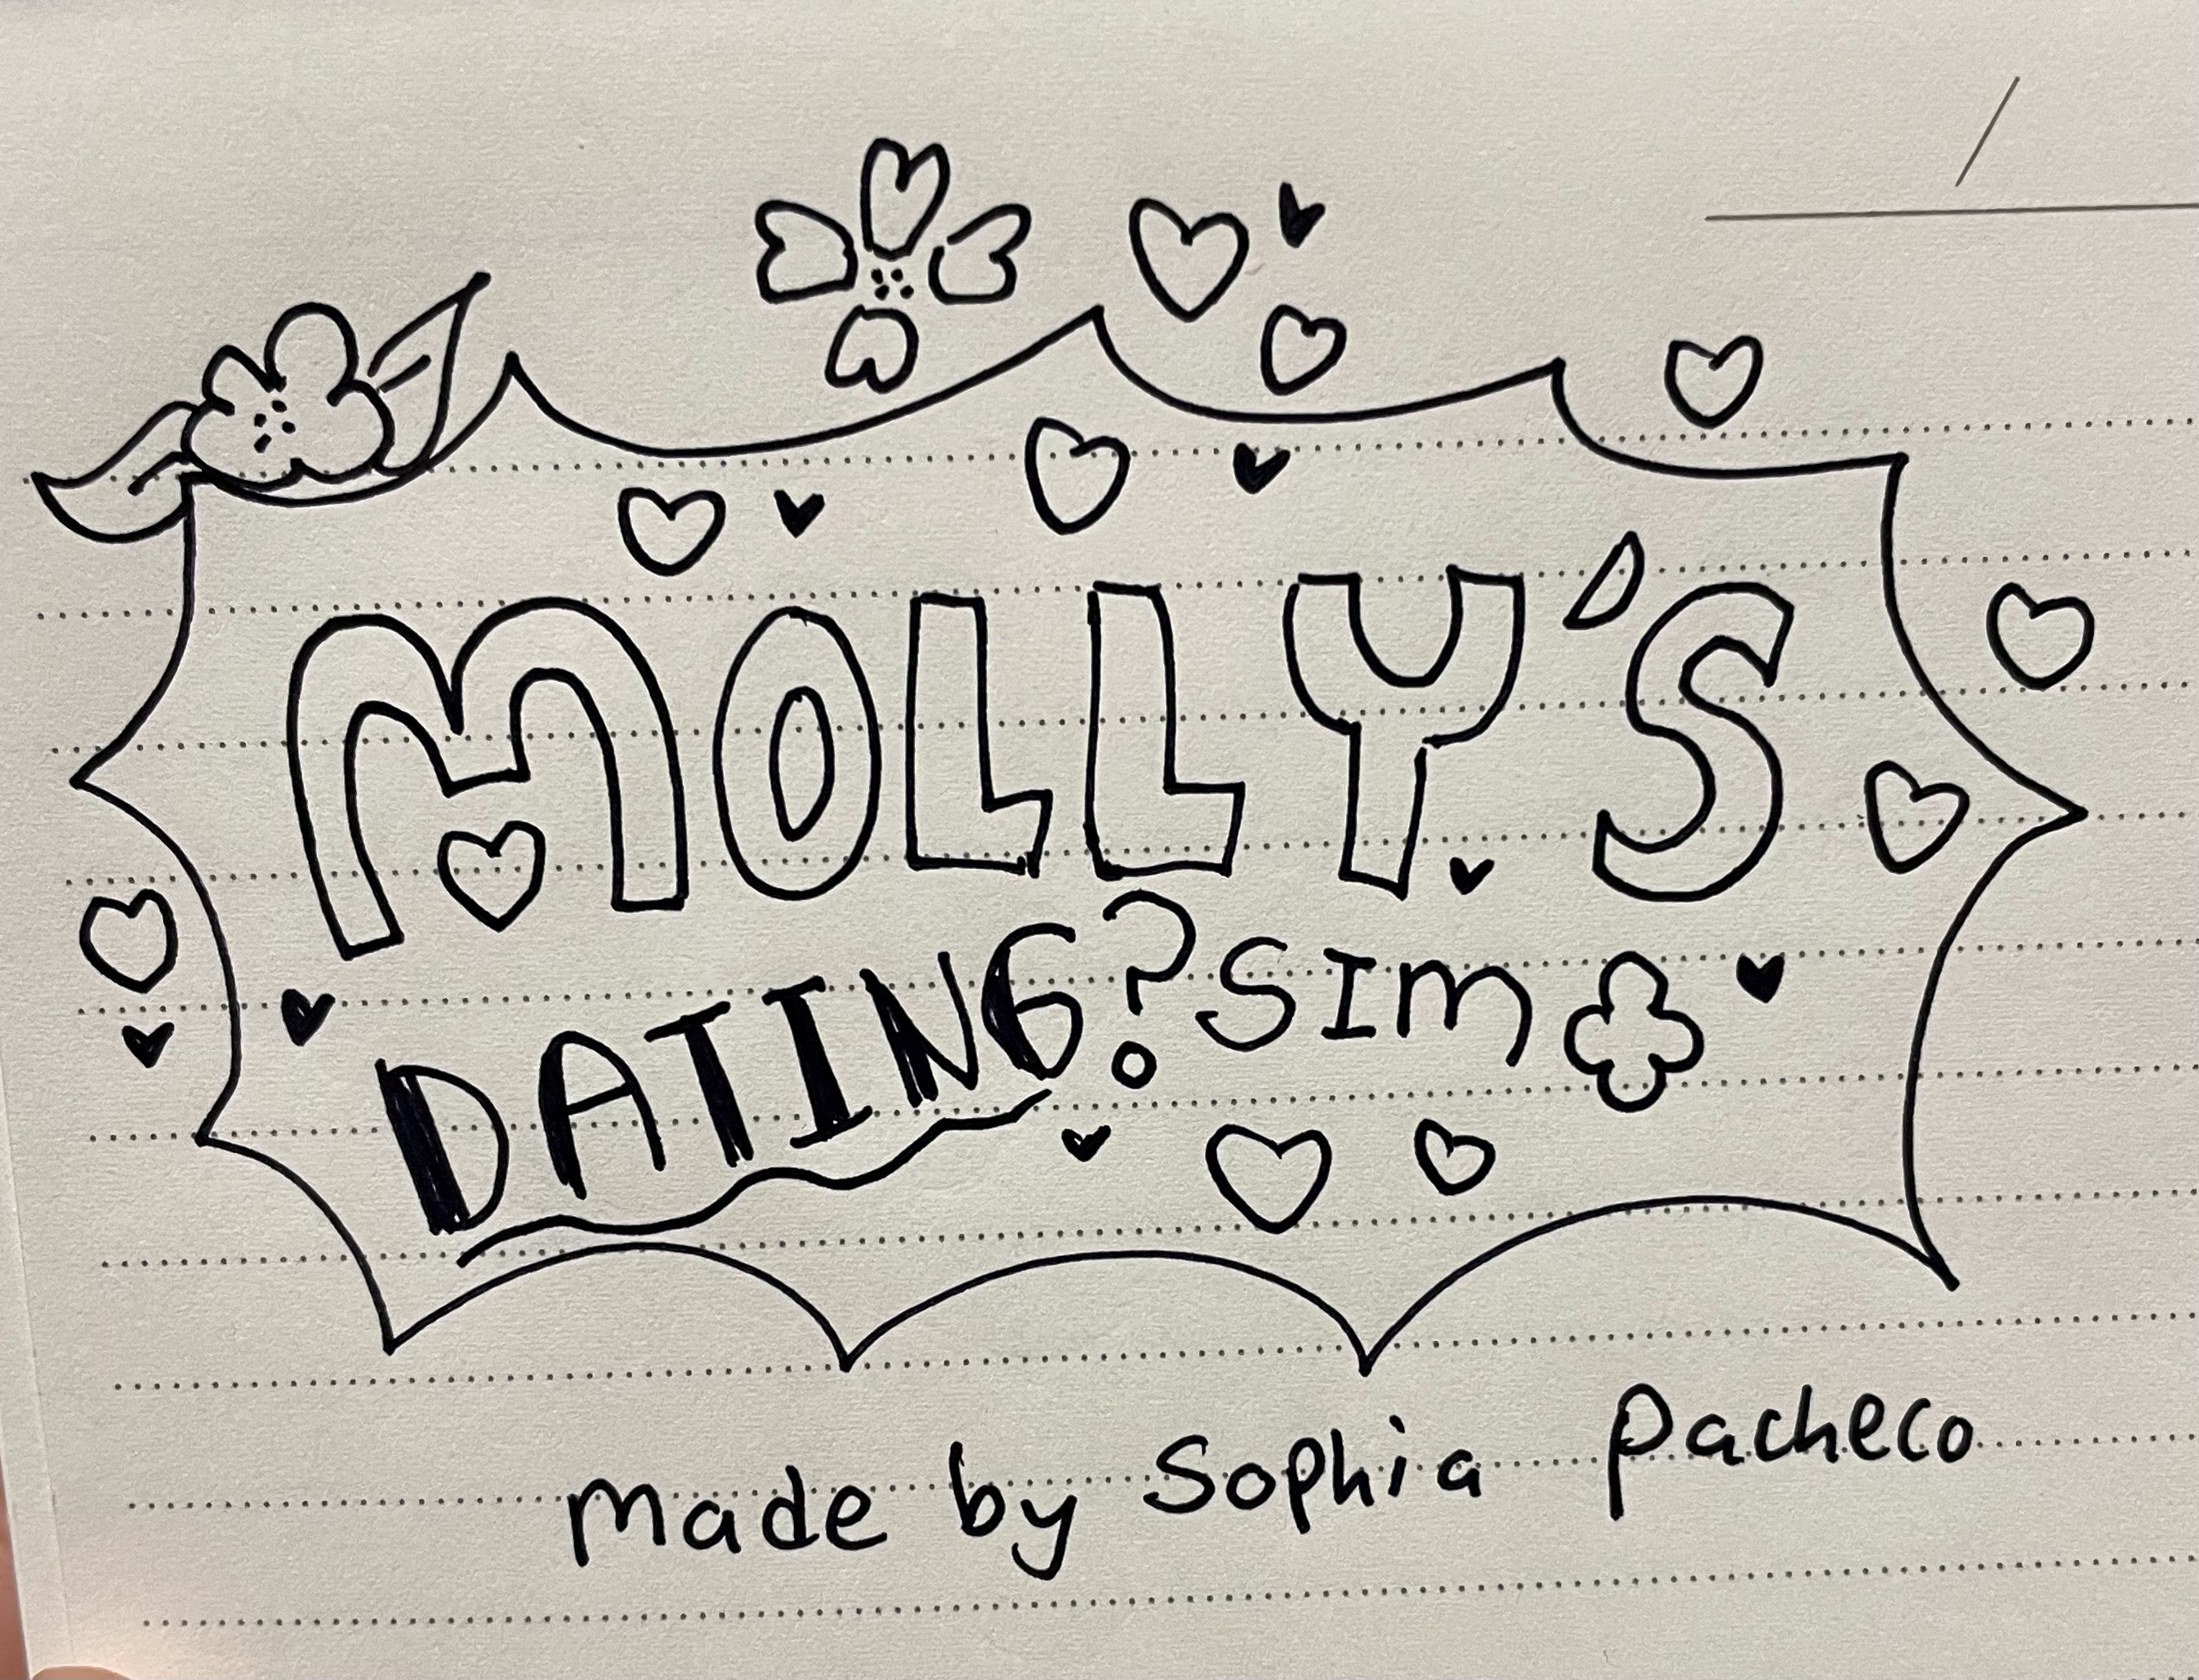 MOLLY'S
DATING? SIM
made by Sophia Pacheco